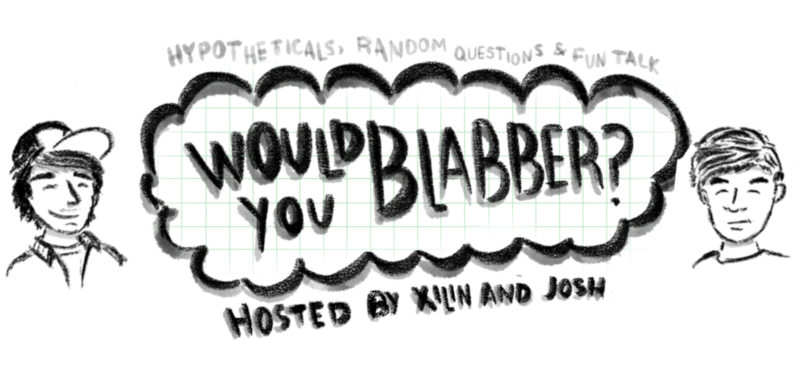 HYPOTHETICALS, RANDOM QUESTIONS & FUN TALK
WOULD YOU BLABBER?
HOSTED BY XILIN AND JOSH